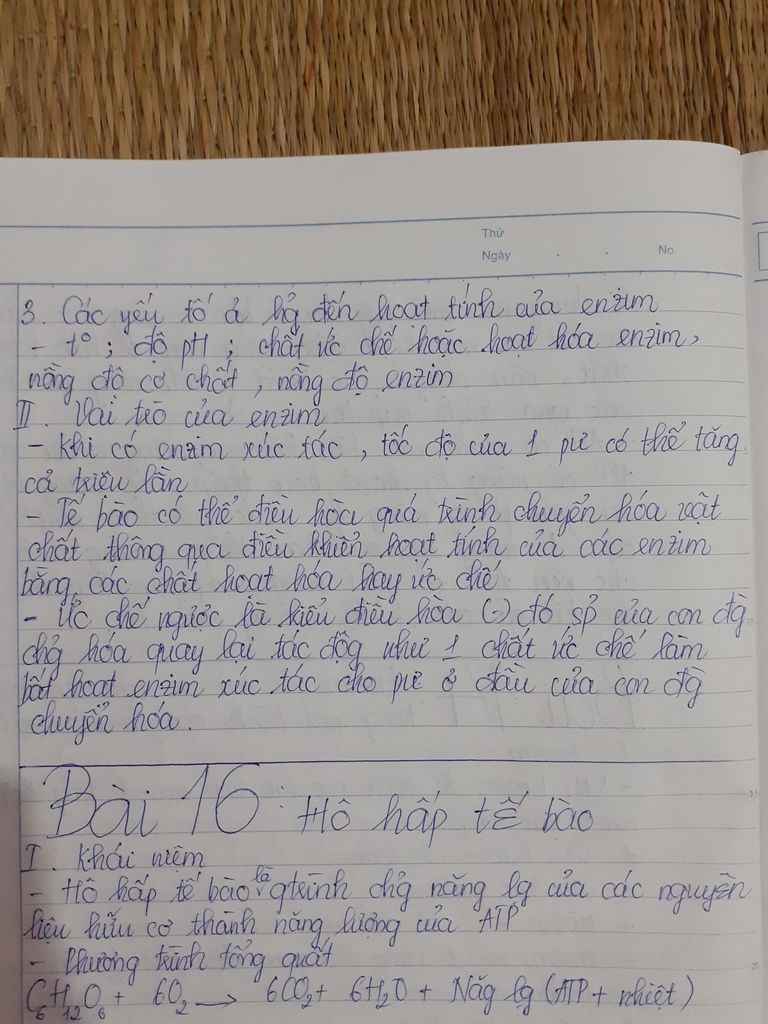 Thứ
Ngày . . No.
3. Các yếu tố ả hg̉ đến hoạt tính của enzim
- t° ; độ pH ; chất ức chế hoặc hoạt hóa enzim,
nồng độ cơ chất, nồng độ enzim
II. Vai trò của enzim
- Khi có enzim xúc tác, tốc độ của 1 pư có thể tăng
cả triệu lần
- Tế bào có thể điều hòa quá trình chuyển hóa vật
chất thông qua điều khiển hoạt tính của các enzim
bằng các chất hoạt hóa hay ức chế
- Ức chế ngược là kiểu điều hòa (-) đó sp̉ của con đg̀
chg̉ hóa quay lại tác độg như 1 chất ức chế làm
bất hoạt enzim xúc tác cho pư ở đầu của con đg̀
chuyển hóa.
Bài 16 : Hô hấp tế bào
I. Khái niệm
- Hô hấp tế bào là qtrình chg̉ năng lg của các nguyên
liệu hữu cơ thành năng lượng của ATP
- Phương trình tổng quát
C₆H₁₂O₆ + 6O₂ → 6CO₂ + 6H₂O + Năg lg (ATP + nhiệt)